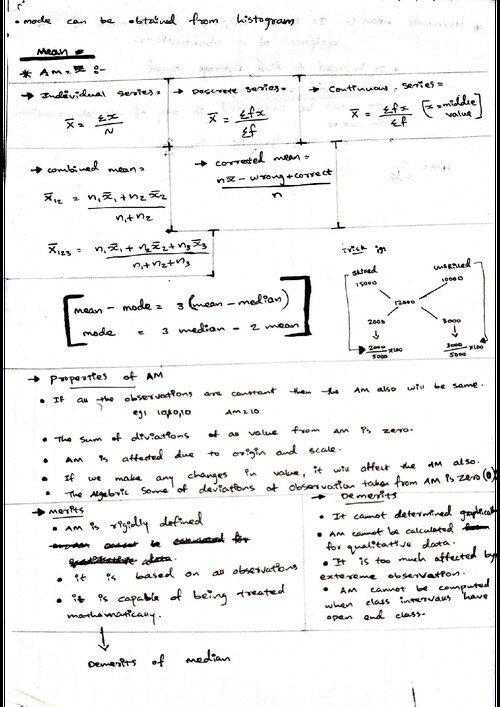 • mode can be obtained from histogram
Mean =
* AM = x̄ :-
→ Individual series = → Descrete series = → Continuous series =
x̄ = Σx/N x̄ = Σfx/Σf x̄ = Σfx/Σf [x = middle value]
→ combined mean = → corrected mean =
x̄12 = n1x̄1 + n2x̄2 / n1+n2 nx̄ - wrong + correct / n
x̄123 = n1x̄1 + n2x̄2 + n3x̄3 / n1+n2+n3
mean - mode = 3 (mean - median)
mode = 3 median - 2 mean
Trick
skilled unskilled
15000 10000
12000
2000 3000
2000/5000 x100 3000/5000 x100
→ Properties of AM
• If all the observations are constant then the AM also will be same.
eg: 10,10,10 AM=10
• The sum of diviations of all value from AM is zero.
• AM is affected due to origin and scale.
• If we make any changes in value, it will affect the AM also.
• The Algebric some of deviations of observation taken from AM is zero (0)
→ merits
• AM is rigidly defined
data.
• it is based on all observations
• it is capable of being treated
mathematically.
Demerits of median
→ Demerits
• It cannot determined graphically
• AM cannot be calculated
for qualitative data.
• It is too much affected by
extereme observation.
• AM cannot be computed
when class intervals have
open end class.